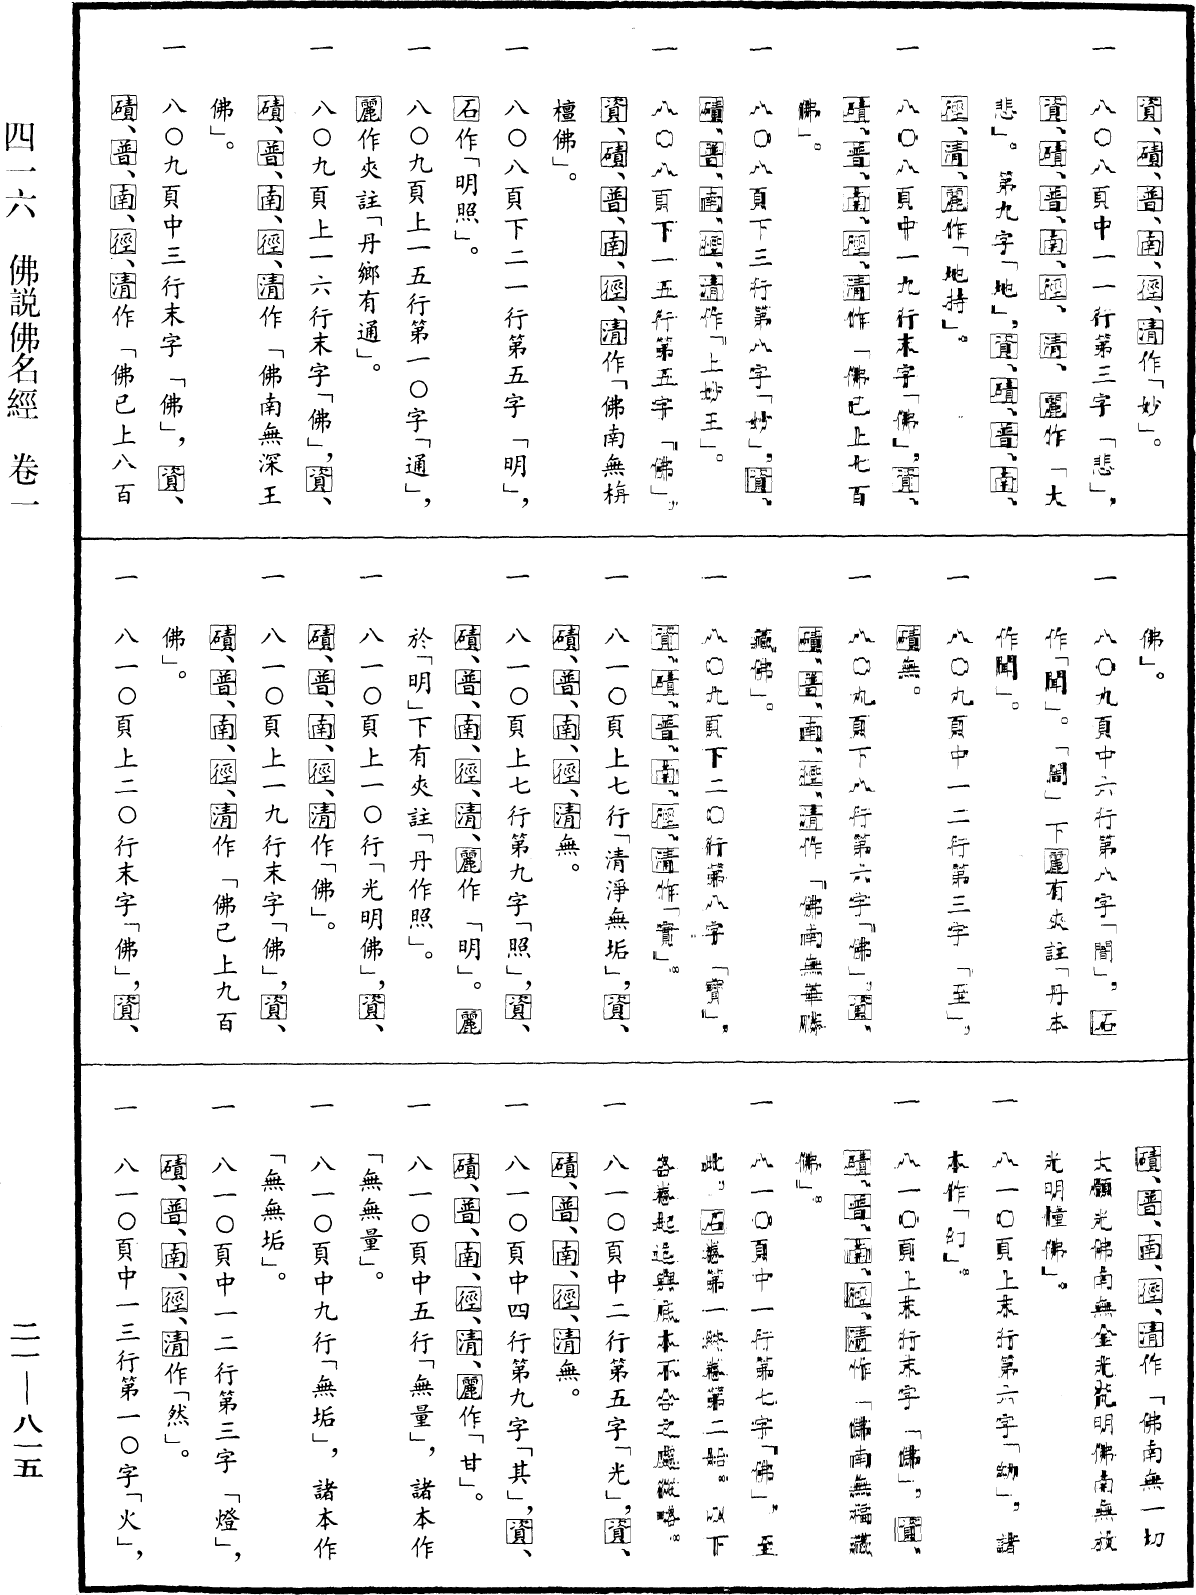 資、磧、普、南、徑、清作「妙」。
一 八〇八頁中一一行第三字「悲」，
資、磧、普、南、徑、清、麗作「大
悲」。第九字「地」，資、磧、普、南、
徑、清、麗作「地持」。
一 八〇八頁中一九行末字「佛」，資、
磧、普、南、徑、清作「佛已上七百
佛」。
一 八〇八頁下三行第八字「妙」，資、
磧、普、南、徑、清作「上妙王」。
一 八〇八頁下一五行第五字「佛」，
資、磧、普、南、徑、清作「佛南無栴
檀佛」。
一 八〇八頁下二一行第五字「明」，
石作「明照」。
一 八〇九頁上一五行第一〇字「通」，
麗作夾註「丹鄉有通」。
一 八〇九頁上一六行末字「佛」，資、
磧、普、南、徑、清作「佛南無深王
佛」。
一 八〇九頁中三行末字「佛」，資、
磧、普、南、徑、清作「佛已上八百
佛」。
一 八〇九頁中六行第八字「闇」，石
作「聞」。「闇」下麗有夾註「丹本
作聞」。
一 八〇九頁中一二行第三字「至」，
磧無。
一 八〇九頁下八行第六字「佛」，資、
磧、普、南、徑、清作「佛南無華勝
藏佛」。
一 八〇九頁下二〇行第八字「寶」，
資、磧、普、南、徑、清作「實」。
一 八一〇頁上七行「清淨無垢」，資、
磧、普、南、徑、清無。
一 八一〇頁上七行第九字「照」，資、
磧、普、南、徑、清、麗作「明」。麗
於「明」下有夾註「丹作照」。
一 八一〇頁上一〇行「光明佛」，資、
磧、普、南、徑、清作「佛」。
一 八一〇頁上一九行末字「佛」，資、
磧、普、南、徑、清作「佛已上九百
佛」。
一 八一〇頁上二〇行末字「佛」，資、
磧、普、南、徑、清作「佛南無一切
大願光佛南無金光龍明佛南無放
光明幢佛」。
一 八一〇頁上末行第六字「納」，諸
本作「幻」。
一 八一〇頁上末行末字「佛」，資、
磧、普、南、徑、清作「佛南無福藏
佛」。
一 八一〇頁中一行第七字「佛」，至
此，石卷第一終卷第二始。以下
各卷起迄與底本不合之處從略。
一 八一〇頁中二行第五字「光」，資、
磧、普、南、徑、清無。
一 八一〇頁中四行第九字「其」，資、
磧、普、南、徑、清、麗作「甘」。
一 八一〇頁中五行「無量」，諸本作
「無無量」。
一 八一〇頁中九行「無垢」，諸本作
「無無垢」。
一 八一〇頁中一二行第三字「燈」，
磧、普、南、徑、清作「然」。
一 八一〇頁中一三行第一〇字「火」，
四一六 佛説佛名經 卷一
二一—八一五